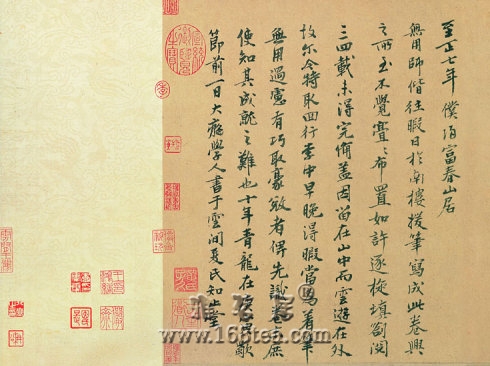 至正七年僕歸富春山居
無用師偕往暇日於南樓援筆寫成此卷興
之所至不覺亹〻布置如許逐旋填劄閱
三四載未得完備盖因留在山中而雲遊在外
故尔今特取回行李中早晚得暇當為着筆
無用過慮有巧取豪敚者俾先識卷末庶
使知其成就之難也十年青龍在庚寅歜
節前一日大癡學人書于雲間夏氏知止堂
www.168tea.com